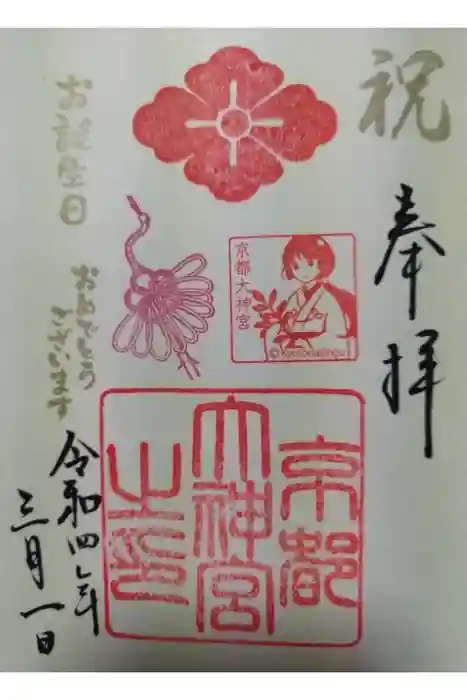 祝
奉拝
京都大神宮
©Kyotodaijingu
京都
大神宮
之印
お誕生日
おめでとう
ございます
令和四年
三月一日